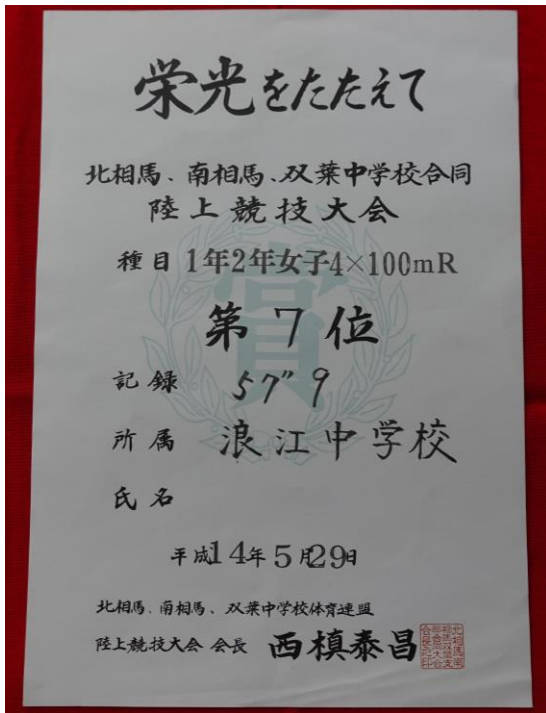 栄光をたたえて
北相馬、南相馬、双葉中学校合同
陸上競技大会
種目 1年2年女子4×100mR
賞
第7位
記録 57"9
所属 浪江中学校
氏名
平成14年5月29日
北相馬、南相馬、双葉中学校体育連盟
陸上競技大会 会長 西槙泰昌